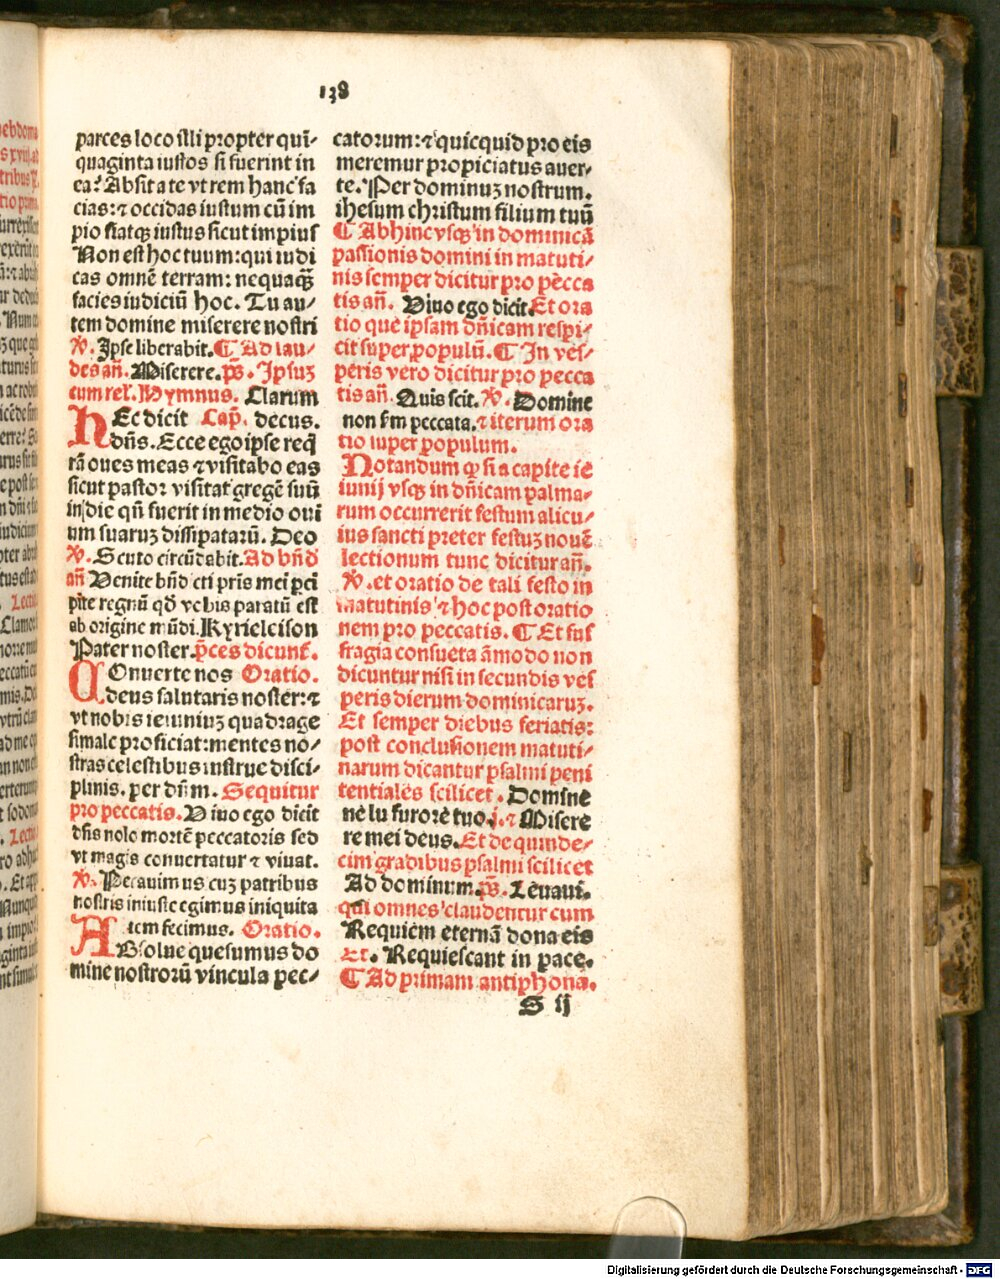 138
parces loco illi propter quī-
quaginta iustos si fuerint in
ea? Absit a te vt rem hanc fa
cias: ⁊ occidas iustum cū im
pio fiatqꝫ iustus sicut impius
Non est hoc tuum: qui iudi
cas omnē terram: nequaqꝫ
facies iudiciū hoc. Tu au-
tem domine miserere nostri
℣. Ipse liberabit. ¶ Ad lau-
des añ. Miserere. p̄s. Ipsuꝫ
cum rel. Hymnus. Clarum
HEc dicit Cap̄. decus.
dn̄s. Ecce ego ipse req̄
rā oues meas ⁊ visitabo eas
sicut pastor visitat gregē suū
in die qn̄ fuerit in medio oui
um suaruꝫ dissipatarū. Deo
℣. Scuto circūdabit. Ad bn̄d
añ Uenite bn̄dcti pr̄is mei p̄ci
pite regnū qd̄ vobis paratū est
ab origine mūdi. Kyrieleison
Pater noster. p̄ces dicunt̄.
COnuerte nos Oratio.
deus salutaris noster: ⁊
vt nobis ieiuniuꝫ quadrage
simale proficiat: mentes no-
stras celestibus instrue disci-
plinis. per dn̄m. Sequitur
pro peccatis. Uiuo ego dicit
dn̄s nolo mortē peccatoris sed
vt magis conuertatur ⁊ viuat.
℣. Peccauimus cuꝫ patribus
nostris iniuste egimus iniquita
tem fecimus. Oratio.
ABsolue quesumus do
mine nostrorū vincula pec-
catorum: ⁊ quicquid pro eis
meremur propiciatus auer-
te. Per dominuꝫ nostrum.
ihesum christum filium tuū
¶ Abhinc vsqꝫ in dominicā
passionis domini in matuti-
nis semper dicitur pro pecca
tis añ. Uiuo ego dicit. Et ora
tio que ipsam dn̄icam respi-
cit super populū. ¶ In ves-
peris vero dicitur pro pecca
tis añ Quis scit. ℣. Domine
non sm̄ peccata. ⁊ iterum ora
tio super populum.
Notandum qꝫ si a capite ie
iunij vsqꝫ in dn̄icam palma-
rum occurrerit festum alicu-
ius sancti preter festuꝫ nouē
lectionum tunc dicitur añ.
℣. et oratio de tali festo in
matutinis ⁊ hoc post oratio
nem pro peccatis. ¶ Et suf
fragia consueta āmodo non
dicuntur nisi in secundis ves
peris dierum dominicaruꝫ.
Et semper diebus feriatis:
post conclusionem matuti-
narum dicantur psalmi peni
tentiales scilicet. Domine
ne in furore tuo. j. ⁊ Misere
re mei deus. Et de quinde-
cim gradibus psalmi scilicet
Ad dominum. p̄s. Leuaui.
qui omnes claudentur cum
Requiem eternā dona eis
⁊c. Requiescant in pace.
¶ Ad primam antiphona.
S ij
Digitalisierung gefördert durch die Deutsche Forschungsgemeinschaft - DFG